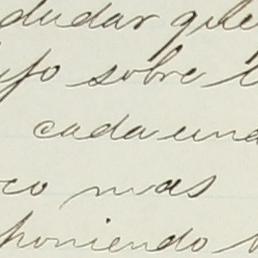 dudar que
sobre
cada una
co mas
poniendo